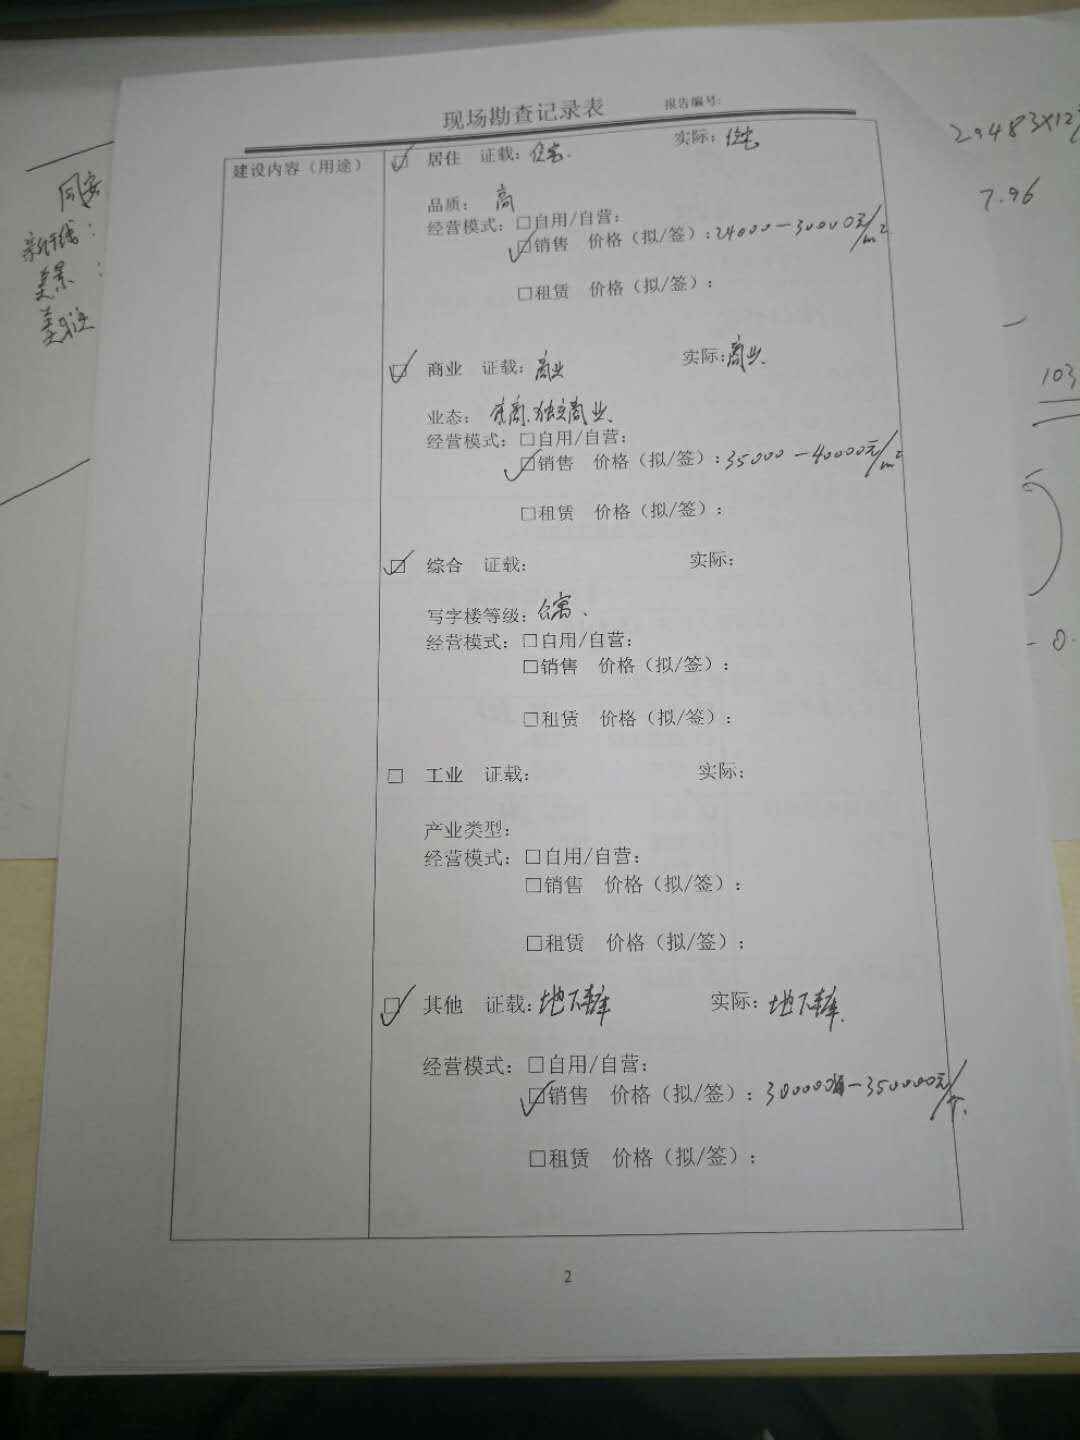 现场勘查记录表 报告编号:
建设内容（用途） ☑ 居住 证载：住宅. 实际：住宅
品质： 高
经营模式：□自用/自营：
☑销售 价格（拟/签）：24000-30000元/m²
□租赁 价格（拟/签）：
☑ 商业 证载：商业 实际:商业、
业态： 住商.独立商业、
经营模式：□自用/自营：
☑销售 价格（拟/签）：35000-40000元/m²
□租赁 价格（拟/签）：
☑ 综合 证载： 实际：
写字楼等级：公寓、
经营模式：□自用/自营：
□销售 价格（拟/签）：
□租赁 价格（拟/签）：
□ 工业 证载： 实际：
产业类型：
经营模式：□自用/自营：
□销售 价格（拟/签）：
□租赁 价格（拟/签）：
☑ 其他 证载：地下车库 实际：地下车库.
经营模式：□自用/自营：
☑销售 价格（拟/签）：300000-350000元/个.
□租赁 价格（拟/签）：
2
同安
美景：
29483×12
7.96
103
-0.